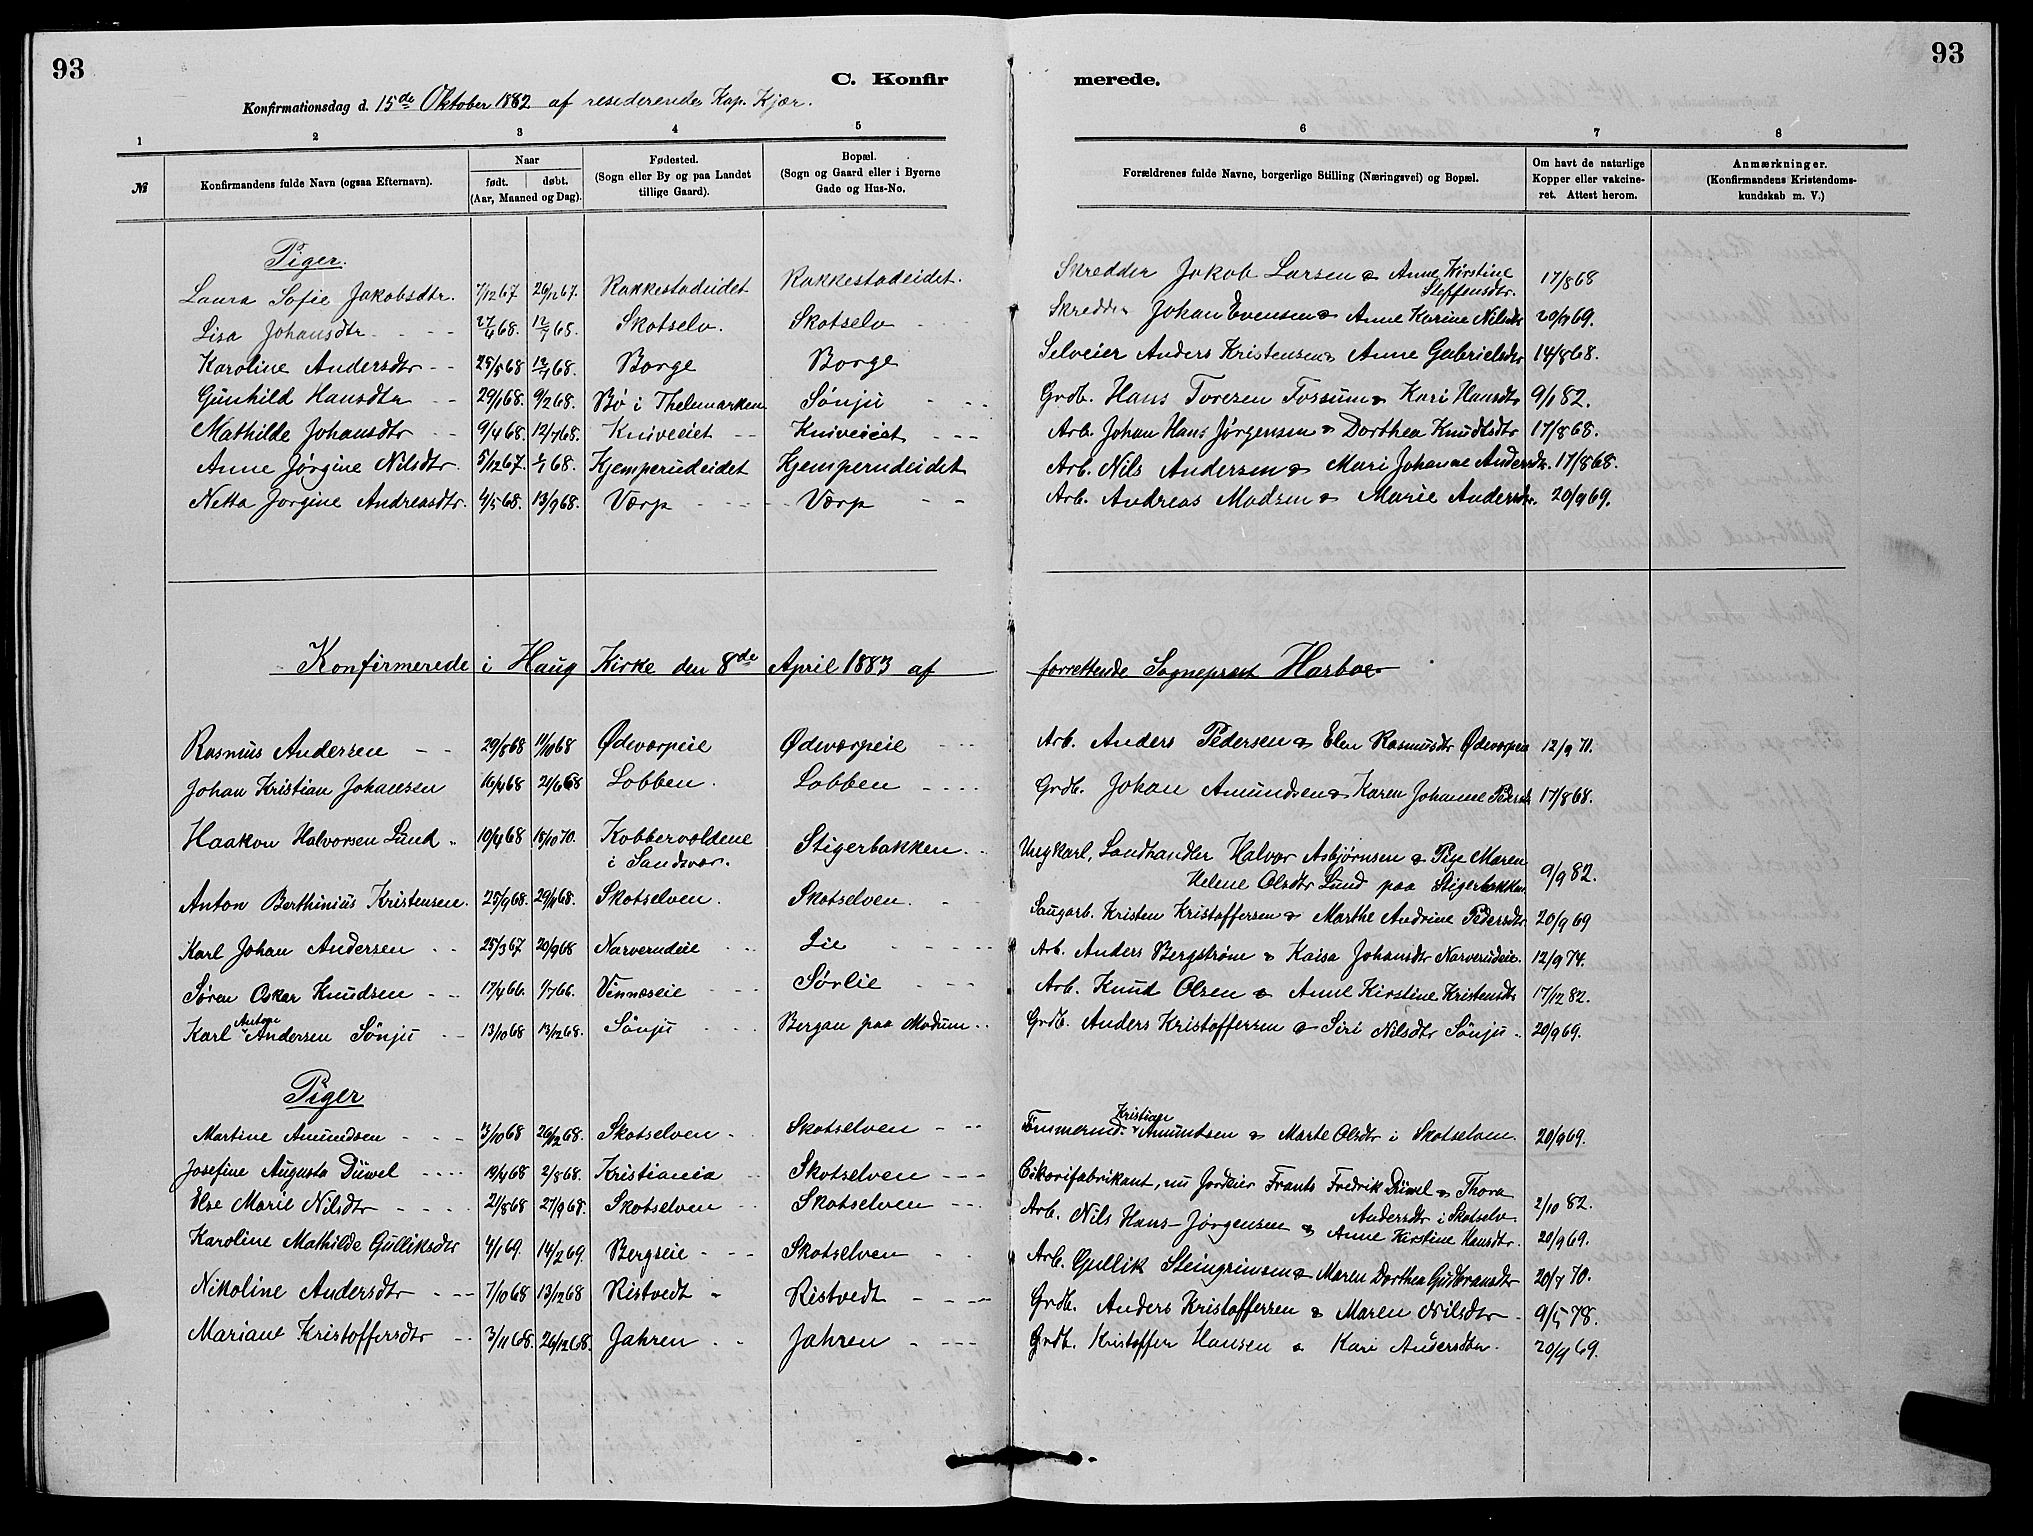 93
C. Konfirmerede.
93
Konfirmationsdag d. 15de Oktober 1882 af residerende Kap. Kjær.
1 2 3 4 5 6 7 8
№ Konfirmandens fulde Navn (ogsaa Efternavn). Naar født. døbt. (Aar, Maaned og Dag). Fødested. (Sogn eller By og paa Landet tillige Gaard). Bopæl. (Sogn og Gaard eller i Byerne Gade og Hus-No. Forældrenes fulde Navne, borgerlige Stilling (Næringsvei) og Bopæl. Om havt de naturlige Kopper eller vakcineret. Attest herom. Anmærkninger. (Konfirmandens Kristendomskundskab m. V.)
Piger.
Laura Sofie Jakobsdtr. 7/12 67. 26/12 67. Rakkestadeidet Rakkestadeidet. Skredder Jakob Larsen & Anne Kirstine Steffensdtr. 17/8 68
Lisa Johansdtr 27/4 68. 12/7 68. Skotselv. Skotselv Skredder Johan Evensen & Anne Karine Nilsdtr 20/9 69.
Karoline Andersdtr 25/5 68 12/7 68. Borge Borge Selveier Anders Kristensen & Anne Gabrielsdtr 14/8 68.
Gunhild Hansdtr 29/1 68. 9/2 68. Bø i Thelemarken Sønju Grdb. Hans Toresen Fossum & Kari Hansdtr 9/1 82.
Mathilde Johansdtr 9/4 68. 12/7 68. Kniveeiet Kniveeiet Arb. Johan Hans Jørgensen & Dorthea Knudtsdtr 17/8 68.
Anne Jørgine Nilsdtr. 5/12 67. 1/1 68. Kjemperudeidet Kjemperudeidet Arb. Nils Andersen & Mari Johanne Andersdtr. 17/8 68.
Netta Jørgine Andreasdtr. 4/5 68. 13/9 68. Værp Værp Arb. Andreas Madsen & Marie Andersdtr. 20/9 69.
Konfirmerede i Haug Kirke den 8de April 1883 af forrettende Sogneprest Harboe
Rasmus Andersen 29/8 68 11/10 68 Ødeværpeie Ødeværpeie Arb. Anders Pedersen & Elen Rasmusdtr Ødeværpeie 12/9 71.
Johan Kristian Johansen 16/4 68 21/6 68 Lobben. Lobben Grdb. Johan Amundsen & Karen Johanne Pedersdtr 17/8 68.
Haakon Halvorsen Lund 10/4 68 15/10 70. Kobbervoldene i Sandsvær. Stigerbakken. Ungkarl, Landhandler Halvor Asbjørnsen & Pige Maren Helene Olsdtr Lund paa Stigerbakken 9/9 82.
Anton Berthinius Kristensen. 25/9 68. 29/11 68. Skotselven. Skotselven. Saugarb. Kristen Kristoffersen & Marthe Andrine Pedersdtr 20/9 69
Karl Johan Andersen 25/3 67 20/9 68 Narverudeie Lie Arb. Anders Bergstrøm & Kaisa Johansdtr Narverudeie. 12/9 74.
Søren Oskar Knudsen 17/4 66. 1/7 66. Vinnæseie Sørlie Arb. Knud Olsen & Anne Kirstine Kristensdtr 17/12 82.
Karl Anton Andersen Sønju 13/10 68 13/12 68. Sønju Bergan paa Modum Grdb. Anders Kristoffersen & Siri Nilsdtr Sønju 20/9 69.
Piger
Martine Amundsen 3/10 68 26/12 68. Skotselven Skotselven Tømmermd. Kristian Amundsen & Marte Olsdtr i Skotselven. 20/9 69.
Josefine Augusta Düwel 19/4 68 2/8 68. Kristiania Skotselven Cikorifabrikant, nu Jordeier Frants Fredrik Düwel & Thora Andersdtr i Skotselv. 2/10 82.
Else Marie Nilsdtr 21/8 68 27/9 68. Skotselven Skotselven Arb. Nils Hans Jørgensen & Anne Kirstine Hansdtr. 20/9 69.
Karoline Mathilde Gulliksdtr 4/1 69. 14/2 69. Bergseie Skotselven Arb. Gullik Steingrimsen & Maren Dorthea Gudbransdtr 20/7 70.
Nikoline Andersdtr 7/10 68 13/12 68 Ristvedt Ristvedt Grdb. Anders Kristoffersen & Maren Nilsdtr 9/5 78.
Mariane Kristoffersdtr 3/11 68. 26/12 68. Jahren Jahren Grdb. Kristoffer Hansen & Kari Andersdtr. 20/9 69.